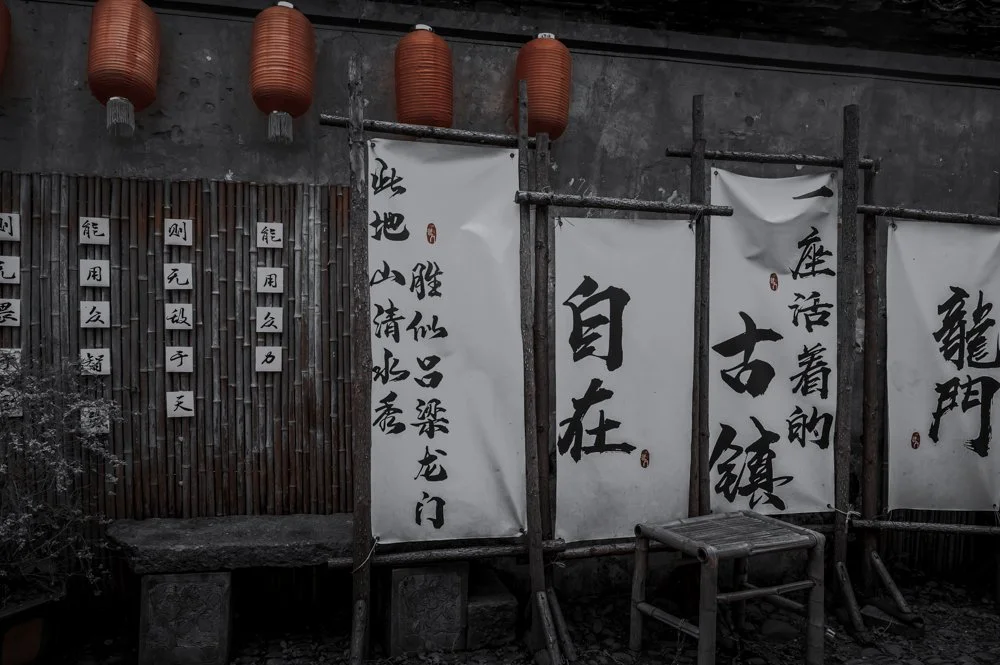 能用众力
则无敌于天
能用众智
则无畏
此地山清水秀
胜似吕梁龙门
自在
一座活着的
古镇
龍門